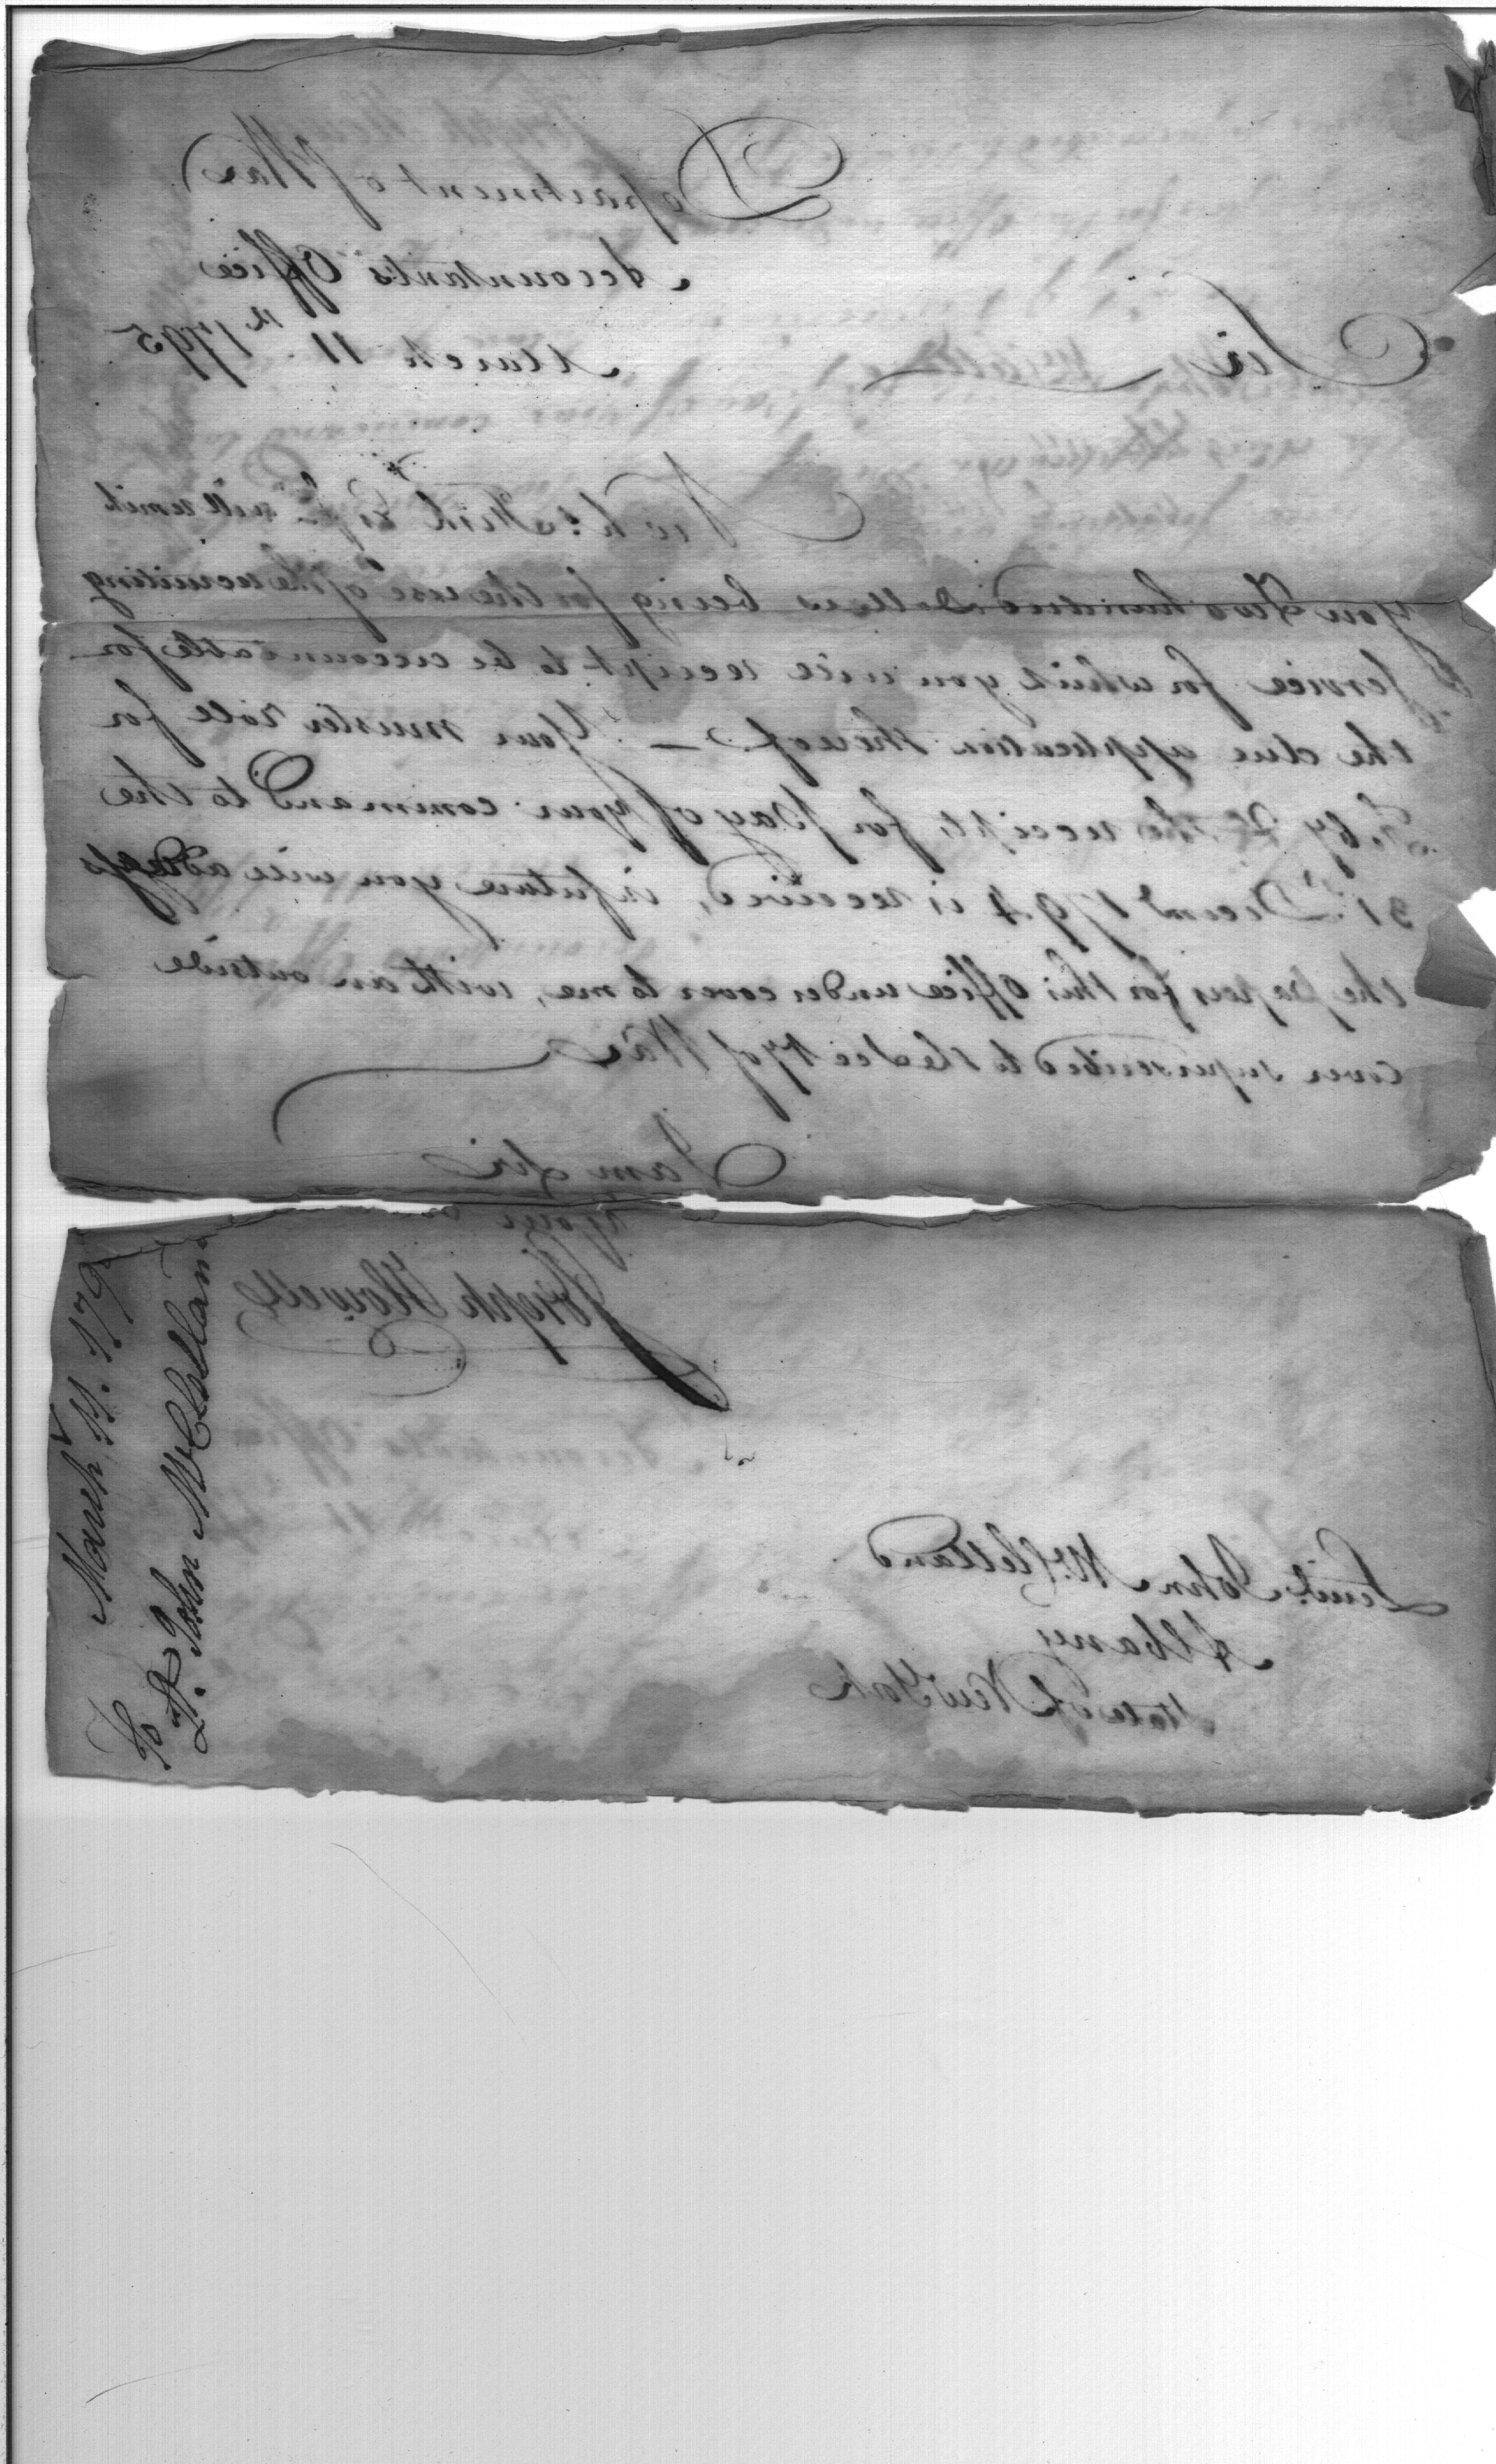 Department of War
Accountant's Office
March 11th 1795
Sir
Nichs. Fish Esqr. will remit
you Two hundred Dollars being for the use of the recruiting
Service for which you will receipt to be accountable for
the due application thereof — Your muster role for
Feby & the receipts for pay of your command to the
31st. Decemr 1794 is received, in future you will address
the papers for this Office under cover to me, with an outside
cover superscribed to the Secy of War
I am Sir
Your
Joseph Howell
Lieut. John McClelland
Albany
State of New York
March 11. 179
To
Lt. John McClelland